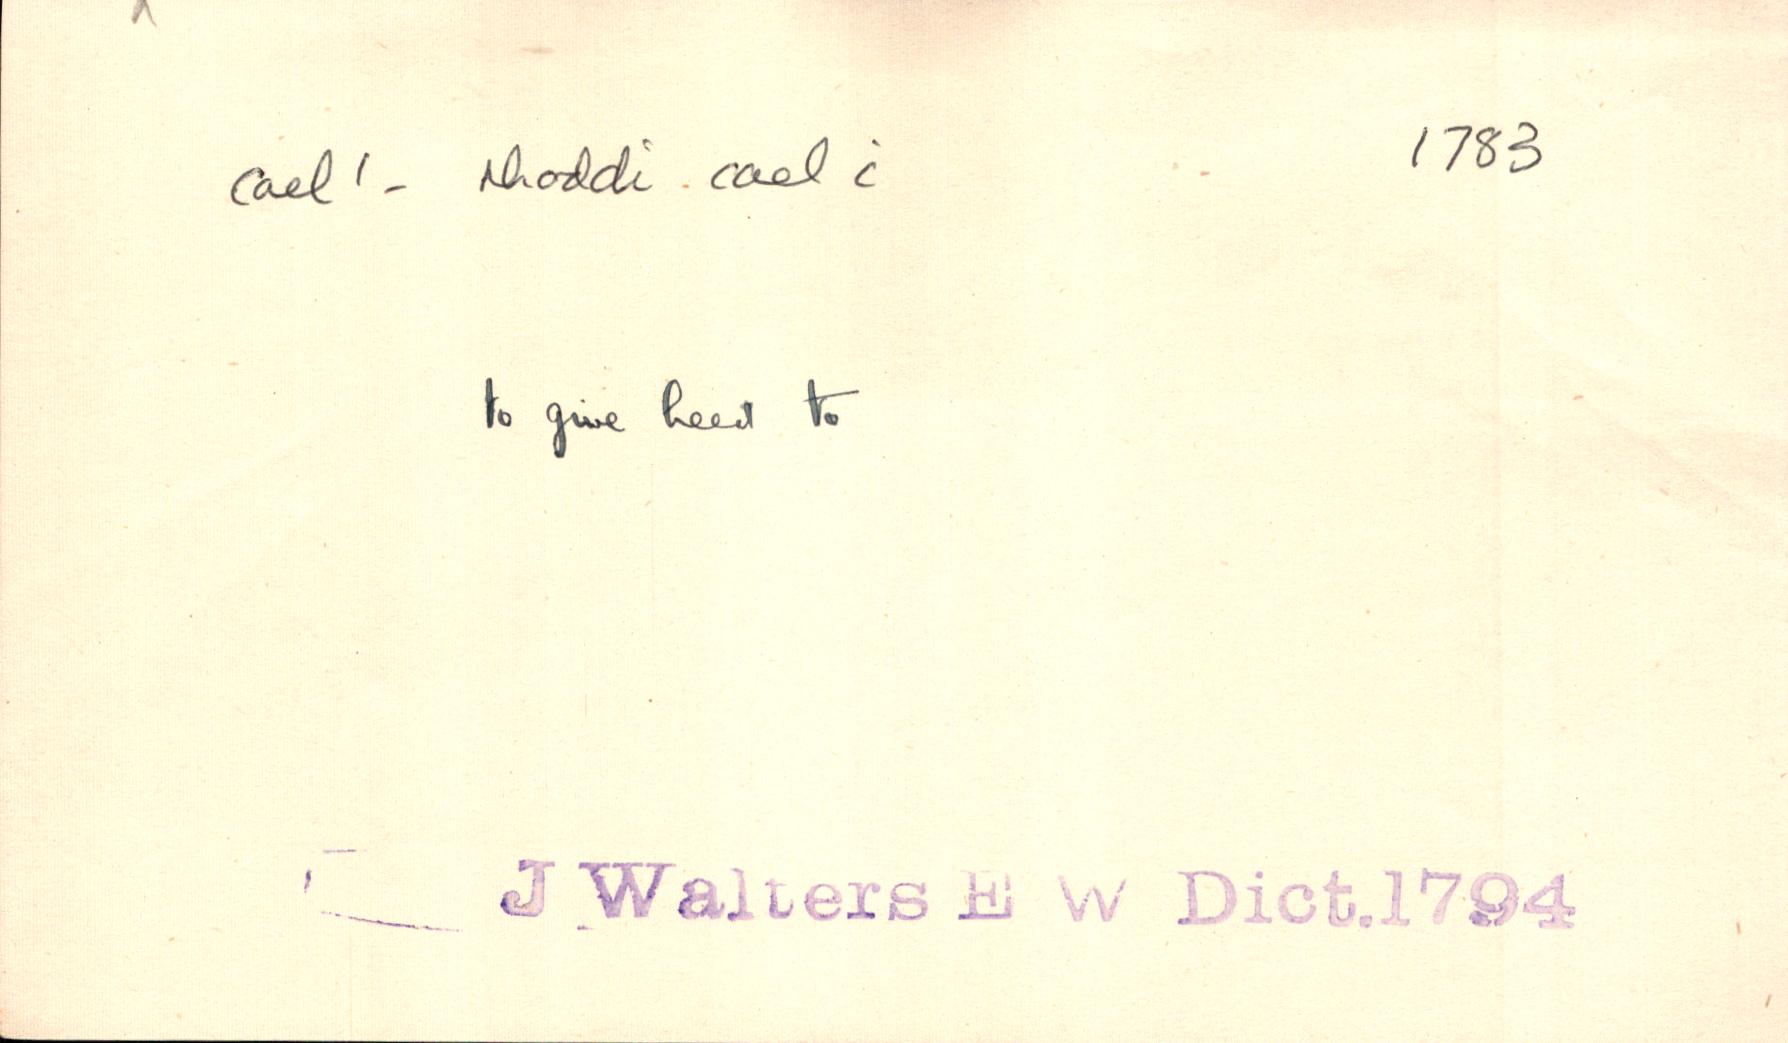 cael¹ - rhoddi cael i 1783
to give heed to
J Walters E W Dict.1794